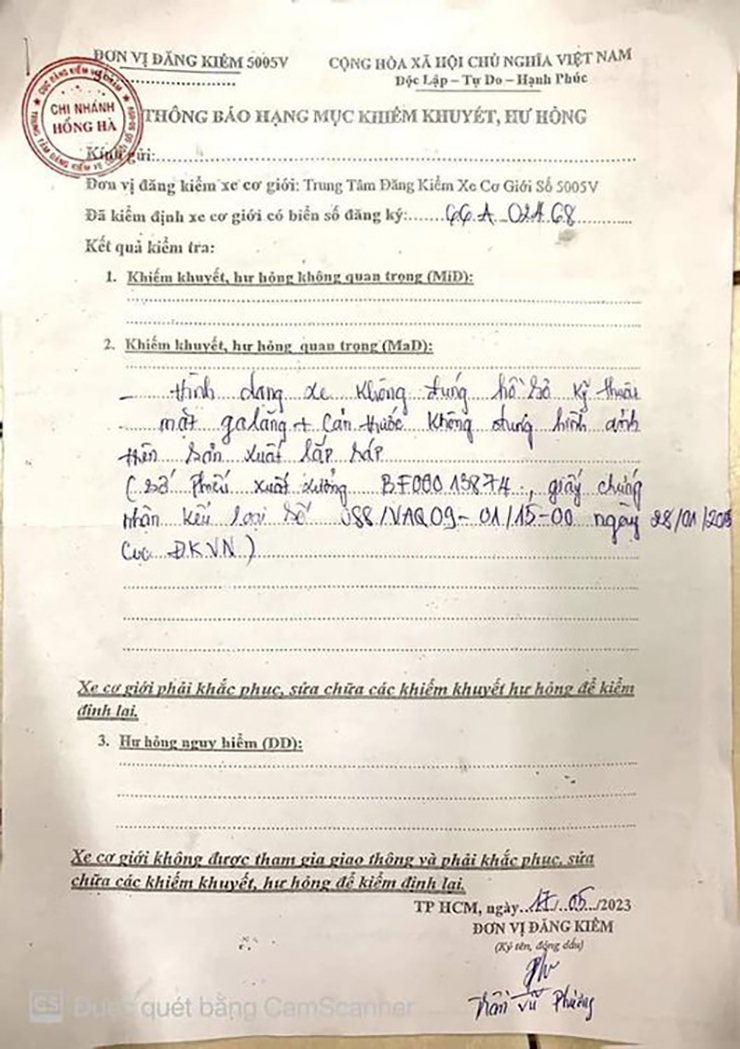 ĐƠN VỊ ĐĂNG KIỂM 5005V
CỘNG HÒA XÃ HỘI CHỦ NGHĨA VIỆT NAM
Độc Lập – Tự Do – Hạnh Phúc
CHI NHÁNH
HỒNG HÀ
THÔNG BÁO HẠNG MỤC KHIẾM KHUYẾT, HƯ HỎNG
Kính gửi:
Đơn vị đăng kiểm xe cơ giới: Trung Tâm Đăng Kiểm Xe Cơ Giới Số 5005V
Đã kiểm định xe cơ giới có biển số đăng ký: 66A 024 68
Kết quả kiểm tra:
1. Khiếm khuyết, hư hỏng không quan trọng (MiD):
2. Khiếm khuyết, hư hỏng quan trọng (MaD):
- hình dạng xe không đúng hồ sơ kỹ thuật
- mặt galăng + cản trước không đúng hình ảnh
trên sản xuất lắp ráp
(số phiếu xuất xưởng BF000 13874, giấy chứng
nhận kiểu loại số 088/VAQ09-01/15-00 ngày 28/01/
Cục ĐKVN)
Xe cơ giới phải khắc phục, sửa chữa các khiếm khuyết hư hỏng để kiểm
định lại.
3. Hư hỏng nguy hiểm (DD):
Xe cơ giới không được tham gia giao thông và phải khắc phục, sửa
chữa các khiếm khuyết, hư hỏng để kiểm định lại.
TP HCM, ngày 17/05/2023
ĐƠN VỊ ĐĂNG KIỂM
(Ký tên, đóng dấu)
Trần Vũ Phương
CS Được quét bằng CamScanner